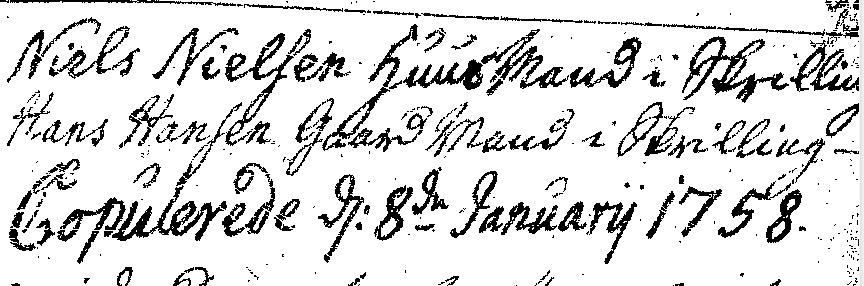 Niels Nielsen Huus Mand i Skrilling
Hans Hansen Gaard Mand i Skrilling-
Copulerede d: 8de Januarij 1758.